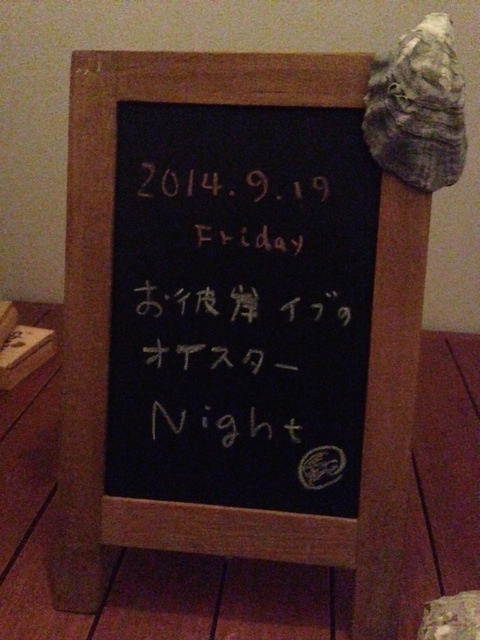 2014.9.19
Friday
お彼岸イブの
オイスター
Night